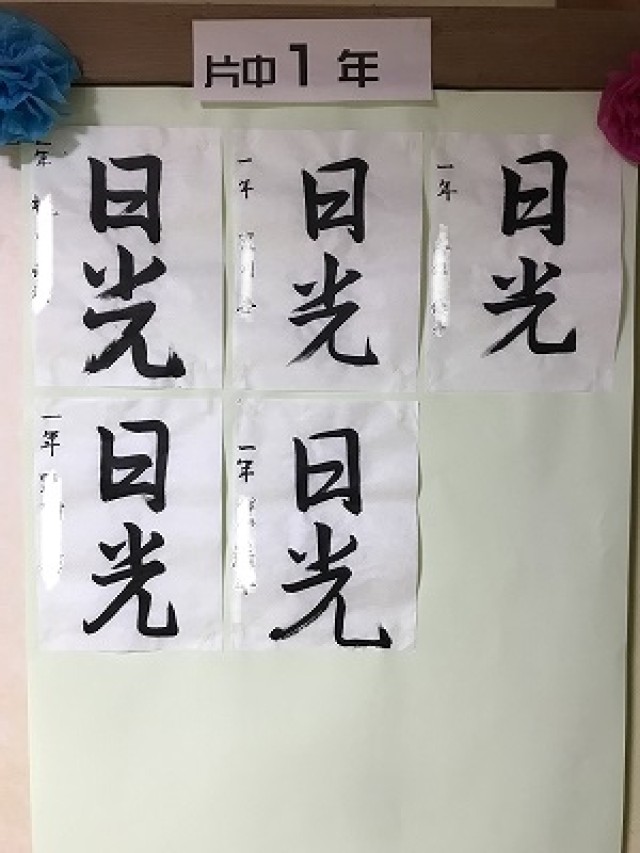 片中1年
一年
日光
一年
日光
一年
日光
一年
日光
一年
日光